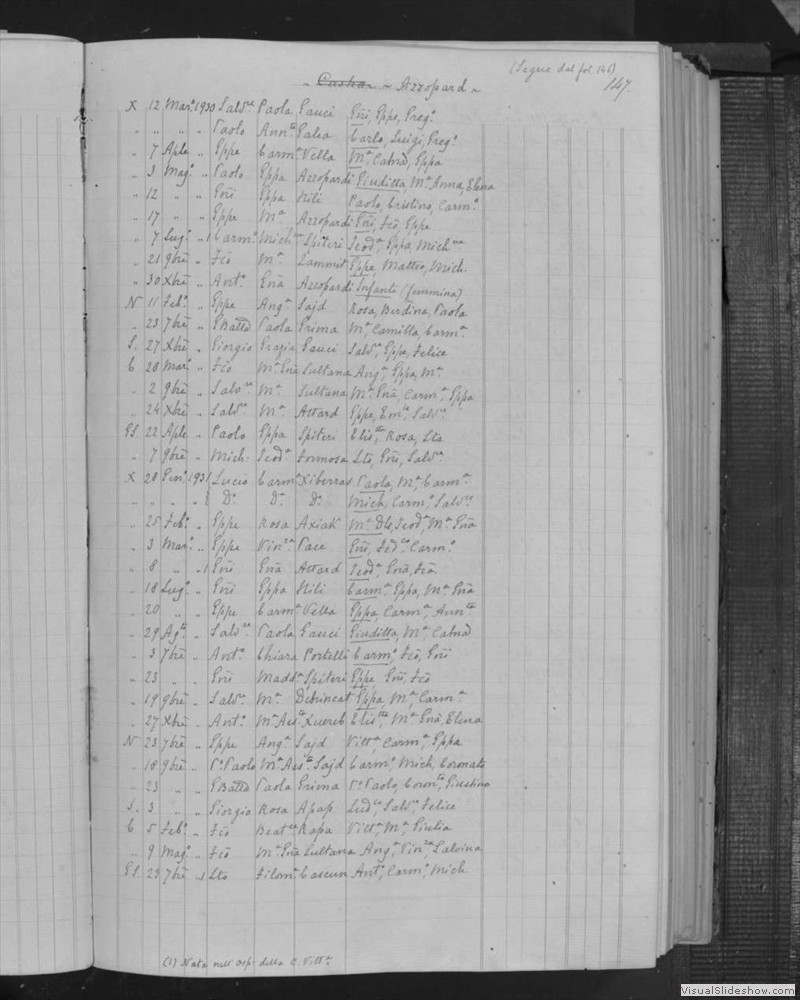 (Segue dal fol. 146)
~ Casha ~ Azzopard ~
147
X 12 Mar.° 1930 Salv.re Paola Gauci Gñi, Eppe, Greg.°
" " " " Paolo Ann.ta Galea Carlo, Luigi, Greg.°
" 7 Aple " Eppe Carm.a Vella M.a Catnã, Eppa
" 3 Mag.° " Paolo Eppa Azzopardi Giuditta, M.a Anna, Elena
" 12 " " Gñi Eppa Mili Paolo, Cristina, Carm.°
" 17 " " Eppe M.a Azzopardi Gñi, Fcõ, Eppe
" 7 Lug.° " 1 Carm.° Mich.na Spiteri Teod.a Eppa, Mich.na
" 21 9bre " Fcõ M.a Zammit Eppe, Matteo, Mich.
" 30 Xbre " Ant.° Gña Azzopardi Infante (femmina)
N 11 Feb.° " Eppe Ang.a Sajd Rosa, Berdina, Paola
" 23 7bre " GBatta Paola Grima M.a Camilla, Carm.a
S. 27 Xbre " Giorgio Grazia Gauci Salv.a, Eppe, Felice
C 28 Mar.° " Fcõ M.a Gña Sultana Ang.a, Eppa, M.a
" 2 9bre " Salv.re M.a Sultana M.a Gña, Carm.a, Eppa
" 24 Xbre " Salv.re M.a Attard Eppe, Em.l, Salv.re
GS. 22 Aple " Paolo Eppa Spiteri Elis.tta, Rosa, Lta
" 7 9bre " Mich: Teod.a Formosa Lto, Gñi, Salv.re
X 28 Gen.° 1931 Lucio Carm.a Xiberras Paola, M.a, Carm.a
" " " " D.° D.° D.° Mich, Carm.°, Salv.re
" 25 Feb.° " Eppe Rosa Axiak M.a Dls, Teod.a, M.a Gña
" 3 Mar.° " Eppe Vin.za Pace Gñi, Fcõ, Carm.°
" 8 " " 1 Gñi Gña Attard Teod.a, Gña, Fcã
" 18 Lug.° " Gñi Eppa Mili Carm.a, Eppa, M.a Gña
" 20 " " Eppe Carm.a Vella Eppa, Carm.a, Ann.ta
" 29 Ag.to " Salv.re Paola Gauci Giuditta, M.a, Catnã
" 3 7bre " Ant.° Chiara Portelli Carm.°, Fcõ, Gñi
" 23 " " Gñi Madd.a Spiteri Eppe, Gñi, Fcõ
" 19 9bre " Salv.re M.a Debrincat Eppa, M.a, Carm.a
" 27 Xbre " Ant.° M.a Ass.ta Xuereb Elis.tta, M.a Gña, Elena
N 23 7bre " Eppe Ang.a Sajd Vitt.a, Carm.a, Eppa
" 18 9bre " P.° Paolo M.a Ass.ta Sajd Carm.°, Mich, Coronato
" 23 " " GBatta Paola Grima P.° Paolo, Coron.to, Giustino
S. 3 " " Giorgio Rosa Apap Lud.co, Salv.re, Felice
C 5 Feb.° " Fcõ Beat.ce Rapa Vitt.a, M.a, Giulia
" 9 Mag.° " Fcõ M.a Gña Sultana Ang.a, Vin.za, Salvina
GS. 23 7bre " 1 Lto Filom.a Cascun Ant.°, Carm.°, Mich
(1) Nata nell' osp. della C. Vitt.a
VisualSlideshow.com